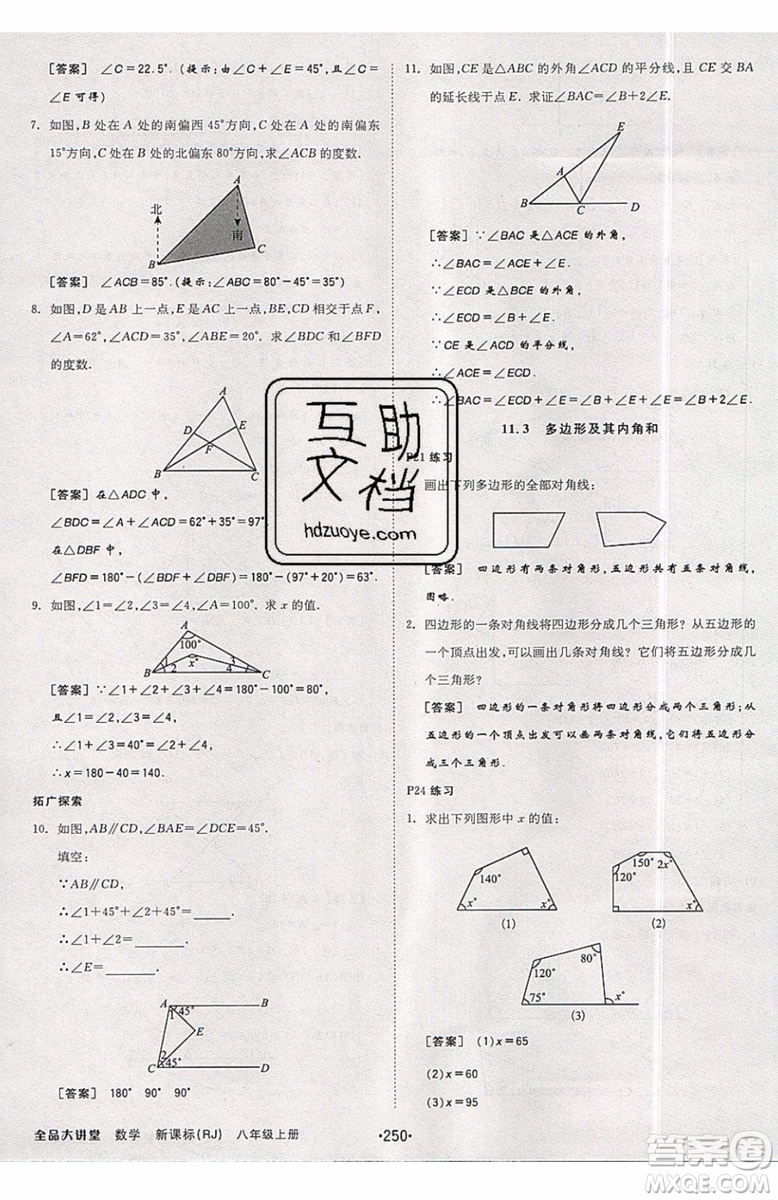 [答案] ∠C=22.5°.(提示:由∠C+∠E=45°,且∠C=
∠E可得)
7. 如图,B处在A处的南偏西45°方向,C处在A处的南偏东
15°方向,C处在B处的北偏东80°方向,求∠ACB的度数.
A
北
南
B
C
[答案] ∠ACB=85°.(提示:∠ABC=80°-45°=35°)
8. 如图,D是AB上一点,E是AC上一点,BE,CD相交于点F,
∠A=62°,∠ACD=35°,∠ABE=20°.求∠BDC和∠BFD
的度数.
A
D
E
F
B
C
[答案] 在△ADC中,
∠BDC=∠A+∠ACD=62°+35°=97°.
在△DBF中,
∠BFD=180°-(∠BDF+∠DBF)=180°-(97°+20°)=63°.
9. 如图,∠1=∠2,∠3=∠4,∠A=100°.求x的值.
A
100°
x°
1
2
3
4
B
C
[答案] ∵∠1+∠2+∠3+∠4=80°,
∠1=∠2,∠3=∠4,
∴∠1+∠3=40°=∠2+∠4.
∴x=180-40=140.
拓广探索
10. 如图,AB∥CD,∠BAE=∠DCE=45°.
填空:
∵AB∥CD,
∴∠1+45°+∠2+45°=____.
∴∠1+∠2=____.
∴∠E=____.
A
B
1
45°
E
2
C
45°
D
[答案] 180° 90° 90°
全品大讲堂 数学 新课标(RJ) 八年级上册
·250·
11. 如图,CE是△ABC的外角∠ACD的平分线,且CE交BA
的延长线于点E.求证∠BAC=∠B+2∠E.
E
A
B
C
D
[答案] ∵∠BAC是△ACE的外角,
∴∠BAC=∠ACE+∠E.
∵∠ECD是△BCE的外角,
∴∠ECD=∠B+∠E.
∵CE是∠ACD的平分线,
∴∠ACE=∠ECD.
∴∠BAC=∠B+∠E+∠E=∠B+2∠E.
11.3 多边形及其内角和
P21练习
画出下列多边形的全部对角线:
[答案] 四边形有两条对角线,五边形共有五条对角线,
图略.
2. 四边形的一条对角线将四边形分成几个三角形?从五边形
的一个顶点出发,可以画出几条对角线?它们将五边形分成几
个三角形?
[答案] 四边形的一条对角线将四边形分成两个三角形;从
五边形的一个顶点出发可以画两条对角线,它们将五边形
分成三个三角形.
P24练习
1. 求出下列图形中x的值:
140°
x°
x°
(1)
120°
150°
2x°
x°
(2)
120°
80°
75°
x°
(3)
[答案] (1)x=65
(2)x=60
(3)x=95
互助
文档
hdzuoye.com
答案圈
MXQE.COM